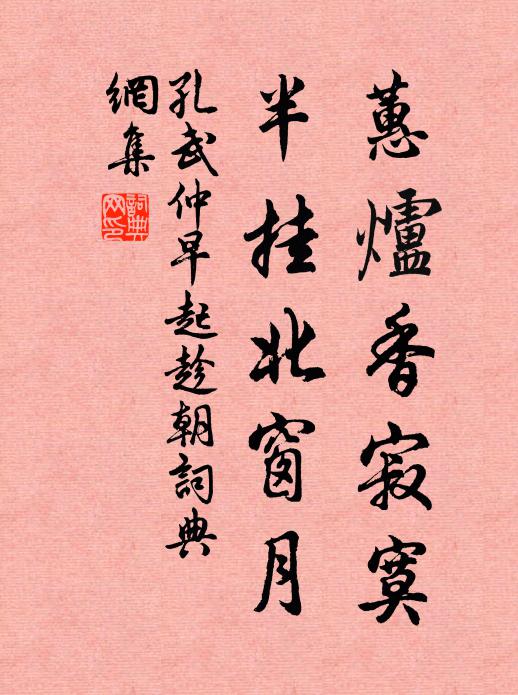 蕙爐香寂寞
半挂北窗月
孔武仲早起趁朝詞典
網集
詞典網印